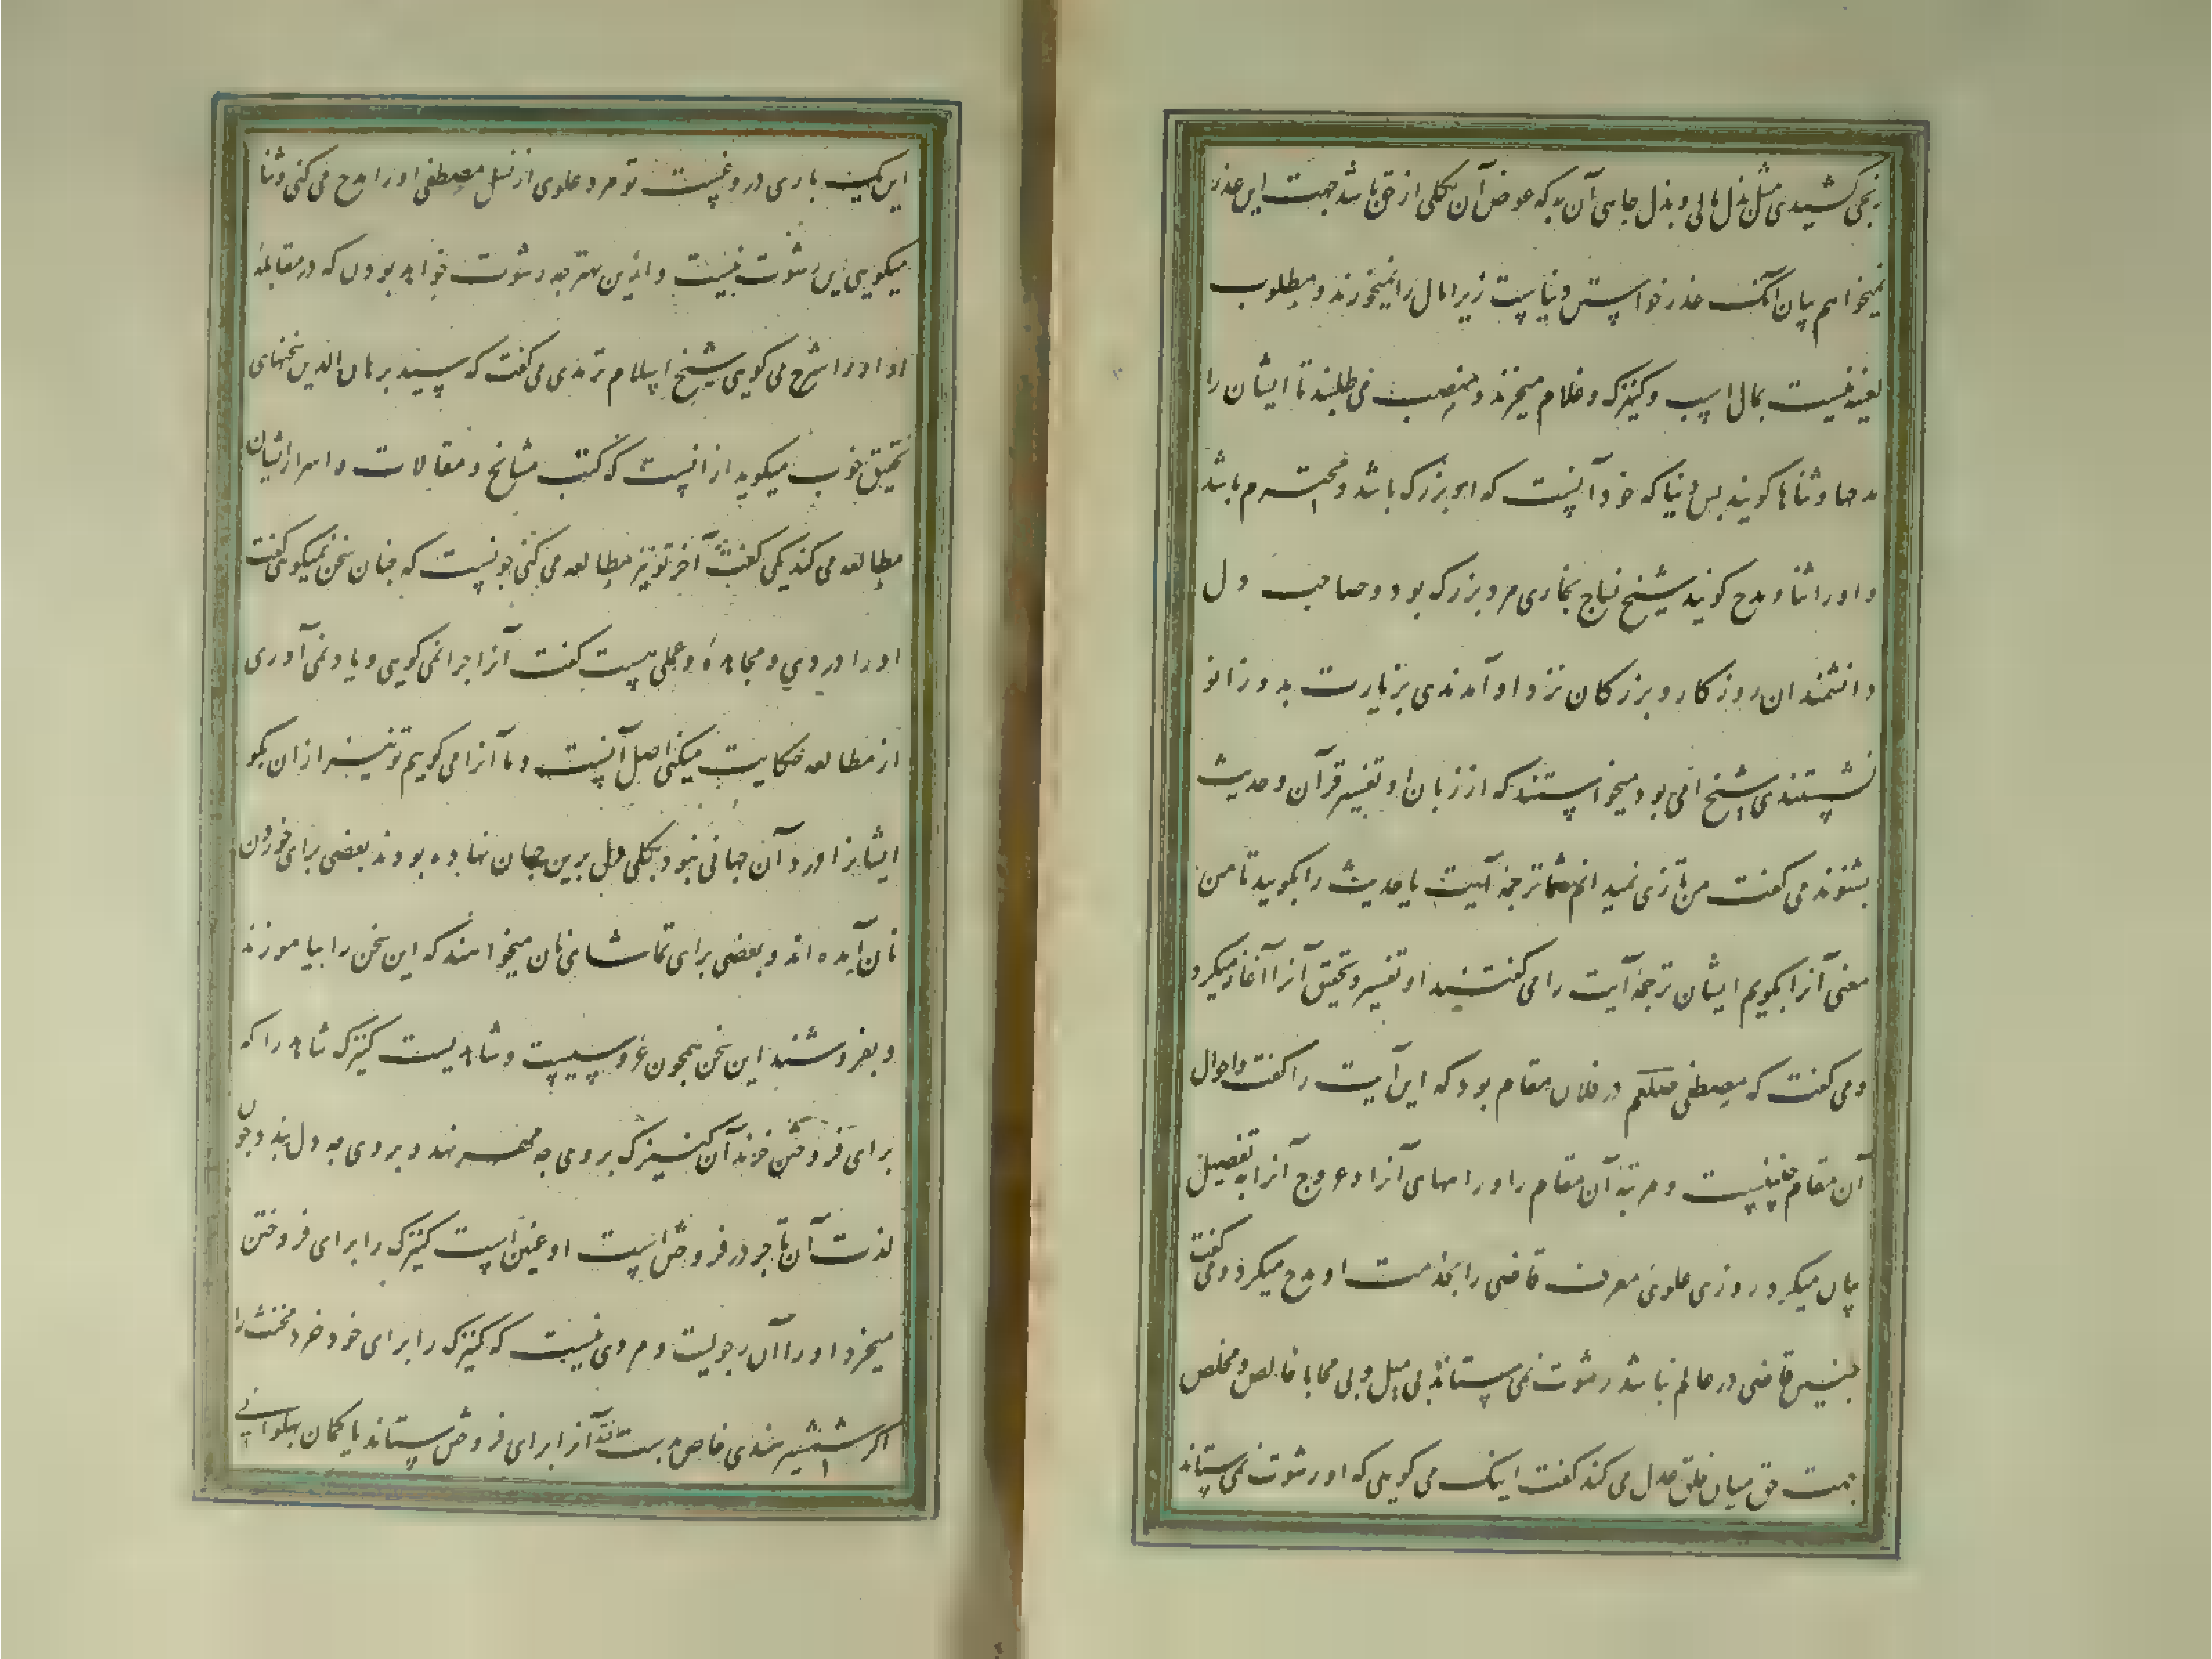 رنجی کشیدی مثل بذل مالی و بذل جاهی آن به که عوض آن بکلی از حق باشد جهت این عذر
نمیخواهم بیان آنک عذر خواستن دنیاست زیرا مال را نمیخورند و مطلوب
لعینه نیست بمال اسب و کنیزک و غلام میخرند و منصب می طلبند تا ایشان را
مدحها و ثناها کویند بس دنیا که خود آنست که او بزرک باشد و محترم باشد
و او را ثنا و مدح کویند شیخ نساج بخاری مرد بزرک بود و صاحب دل
دانشمندان روزکار و بزرکان نزد او آمدندی بزیارت بدو زانو
نشستندی شیخ امی بود میخواستند که از زبان او تفسیر قرآن و حدیث
بشنوند می کفت من تازی نمیدانم شما ترجمهٔ آیت یا حدیث را بکویید تا من
معنی آنرا بکویم ایشان ترجمهٔ آیت را می کفتند او تفسیر و تحقیق آنرا آغاز میکرد
و می کفت که مصطفی صلعم در فلان مقام بود که این آیت را کفت و احوال
آن مقام چنینست و مرتبهٔ آن مقام را و راههای آنرا و عروج آنرا به تفصیل
بیان میکرد روزی علوی معرف قاضی را بخدمت او مدح میکرد و می کفت
چنین قاضی در عالم نباشد رشوت نمی ستاند بی میل و بی محابا خالص و مخلص
جهت حق میان خلق عدل می کند کفت اینک می کویی که او رشوت نمی ستاند
این یک باری دروغست تو مرد علوی از نسل مصطفی او را مدح می کنی و ثنا
میکویی این رشوت نیست و ازین بهتر چه رشوت خواهد بودن که در مقابلهٔ
او او را شرح می کویی شیخ اسلام ترمدی می کفت که سید برهان الدین سخنهای
تحقیق خوب میکوید از انست که کتب مشایخ و مقالات و اسرار ایشان
مطالعه می کند یکی کفت آخر تو نیز مطالعه می کنی چونست که چنان سخن نمیکویی کفت
او را دردی و مجاهدهٔ و عملی هست کفت آنرا چرا نمی کویی و یاد نمی آوری
از مطالعه حکایت میکنی اصل آنست و ما آنرا می کوییم تو نیز از ان بکو
ایشانرا درد آن جهانی نبود بکلی دل برین جهان نهاده بودند بعضی برای خوردن
نان آمده اند و بعضی برای تماشای نان میخواهند که این سخن را بیاموزند
و بفروشند این سخن همچون عروسیست و شاهدیست کنیزک شاهد را که
برای فروختن خرند آن کنیزک بر وی چه مهر نهد و بر وی چه دل بندد چون
لذت آن تاجر در فروش است او عنین است کنیزک را برای فروختن
میخرد او را آن رجولیت و مردی نیست که کنیزک را برای خود خرد مخنث را
اکر شمشیر هندی خاص بدست افتد آنرا برای فروش ستاند یا کمان پهلوانی